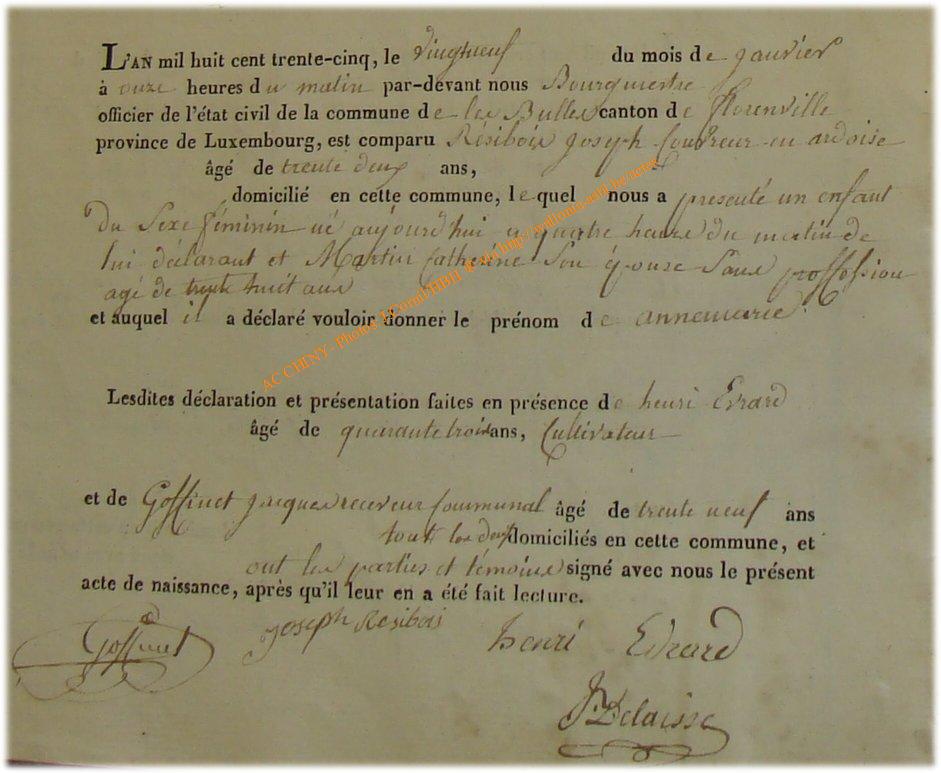 L'AN mil huit cent trente-cinq, le vingtneuf du mois de janvier
à onze heures du matin par-devant nous Bourgmestre
officier de l'état civil de la commune de les Bulles canton de florenville
province de Luxembourg, est comparu Résibois joseph Couvreur en ardoise
âgé de trente deux ans,
domicilié en cette commune, lequel nous a presenté un enfant
du Sexe féminin né aujourd'hui a quatre heure du matin de
lui déclarant et Martin Catherine Son épouse Sans proffession
agé de trente huit ans
et auquel il a déclaré vouloir donner le prénom de annemarie
Lesdites déclaration et présentation faites en présence de henri Evrard
âgé de quarante trois ans, Cultivateur
et de Goffinet jacques receveur Communal âgé de trente neuf ans
tout les deux domiciliés en cette commune, et
ont les parties et témoins signé avec nous le présent
acte de naissance, après qu'il leur en a été fait lecture.
Goffinet Joseph Resibois henri Evrard
Delaisse
AC CHINY - Photos J.Cornil/HBH & via http://wallonia.asbl.be/actes